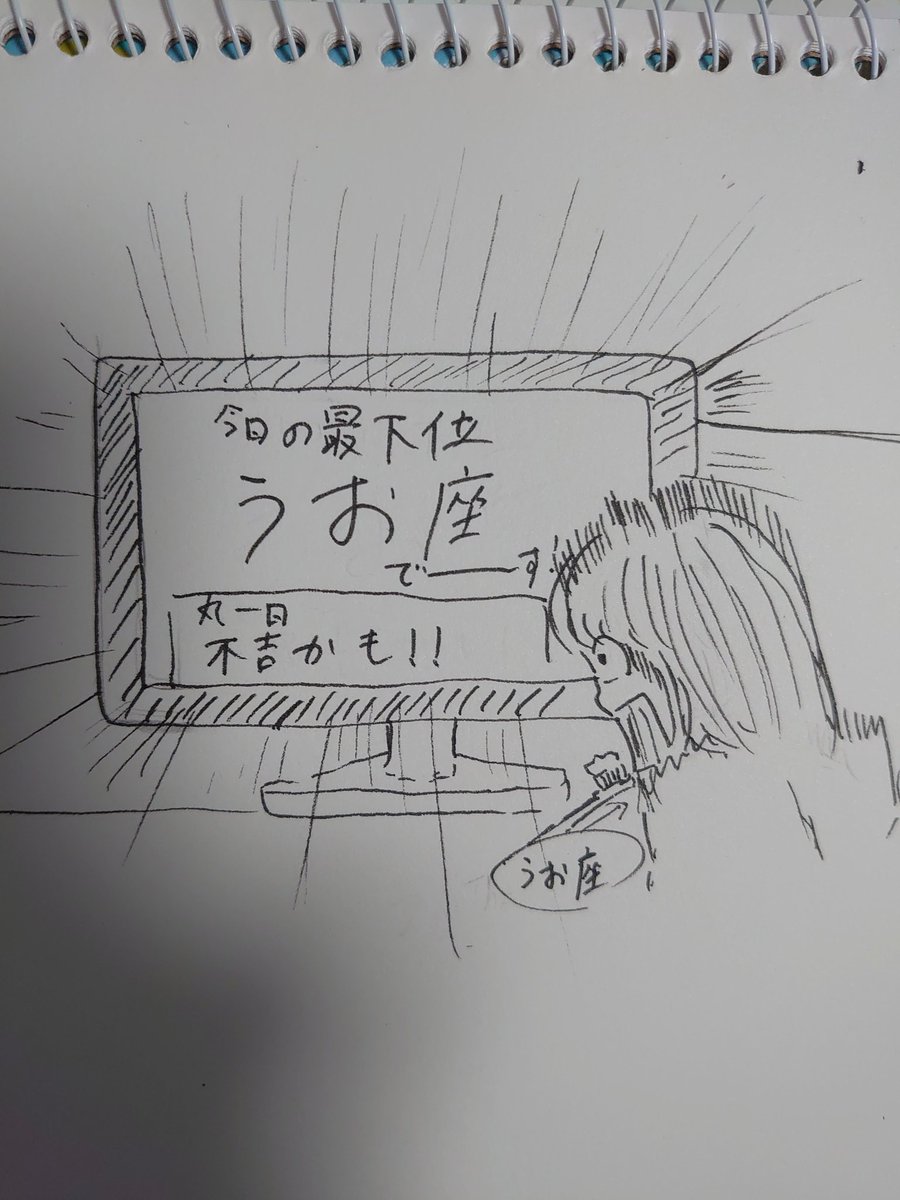 今日の最下位
うお座
で――す
丸一日
不吉かも!!
うお座